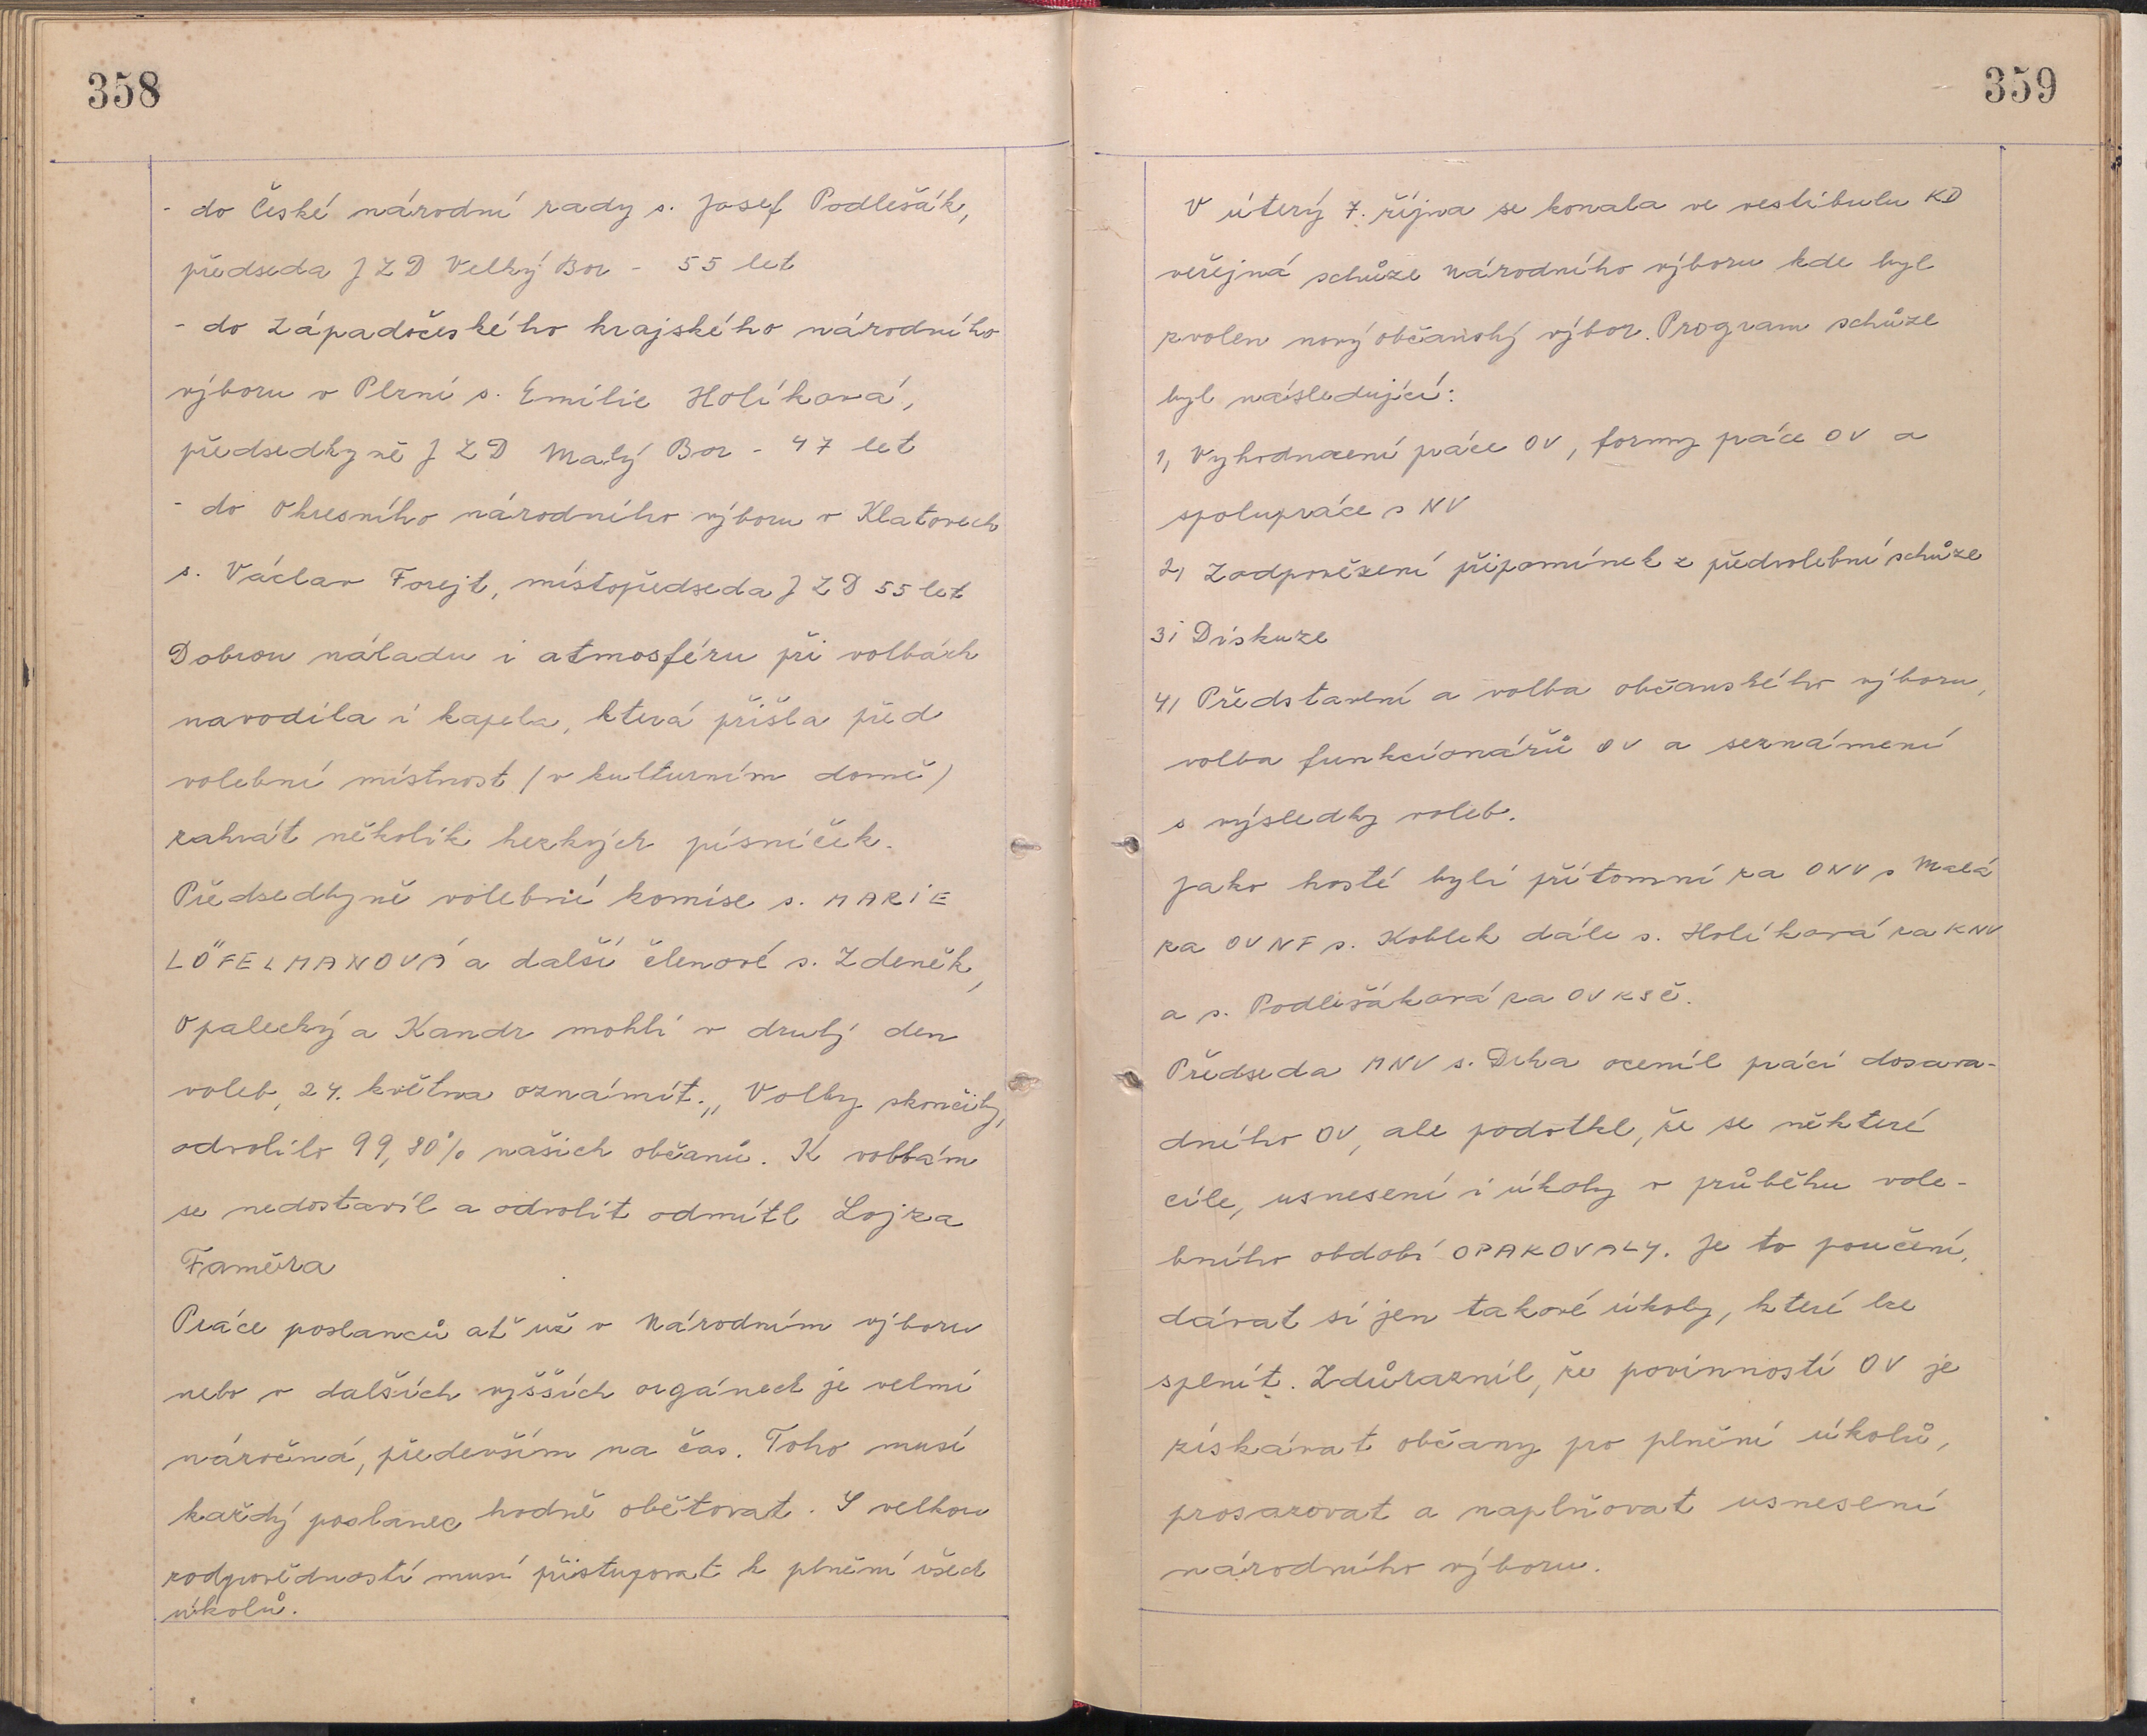 358
- do České národní rady s. Josef Podlešák,
předseda JZD Velký Bor - 55 let
- do Západočeského krajského národního
výboru v Plzni s. Emilie Holíková,
předsedkyně JZD Malý Bor - 47 let
- do Okresního národního výboru v Klatovech
s. Václav Forejt, místopředseda JZD 55 let
Dobrou náladu i atmosféru při volbách
navodila i kapela, která přišla před
volební místnost (v kulturním domě)
zahrát několik hezkých písniček.
Předsedkyně volební komise s. MARIE
LÖFELMANOVÁ a další členové s. Zdeněk,
Opalecký a Kandr mohli v druhý den
voleb, 24. května oznámit. „Volby skončily,
odvolilo 99,80% našich občanů. K volbám
se nedostavil a odvolit odmítl Lojza
Faměra
Práce poslanců ať už v Národním výboru
nebo v dalších vyšších orgánech je velmi
náročná, především na čas. Toho musí
každý poslanec hodně obětovat. S velkou
zodpovědností musí přistupovat k plnění všech
úkolů.
359
V úterý 7. října se konala ve vestibulu KD
veřejná schůze Národního výboru kde byl
zvolen nový občanský výbor. Program schůze
byl následující:
1, Vyhodnocení práce OV, formy práce OV a
spolupráce s NV
2, Zodpovězení připomínek z předvolební schůze
3, Diskuze
4, Představení a volba občanského výboru,
volba funkcionářů OV a seznámení
s výsledky voleb.
Jako hosté byli přítomní za ONV s Malá
za OVNF s. Koblek dále s. Holíková za KNV
a s. Podlešáková za OVKSČ.
Předseda MNV s. Drha ocenil práci dosava-
dního OV, ale podotkl, že se některé
cíle, usnesení i úkoly v průběhu vole-
bního období OPAKOVALY. Je to poučení,
dávat si jen takové úkoly, které lze
splnit. Zdůraznil, že povinností OV je
získávat občany pro plnění úkolů,
prosazovat a naplňovat usnesení
národního výboru.